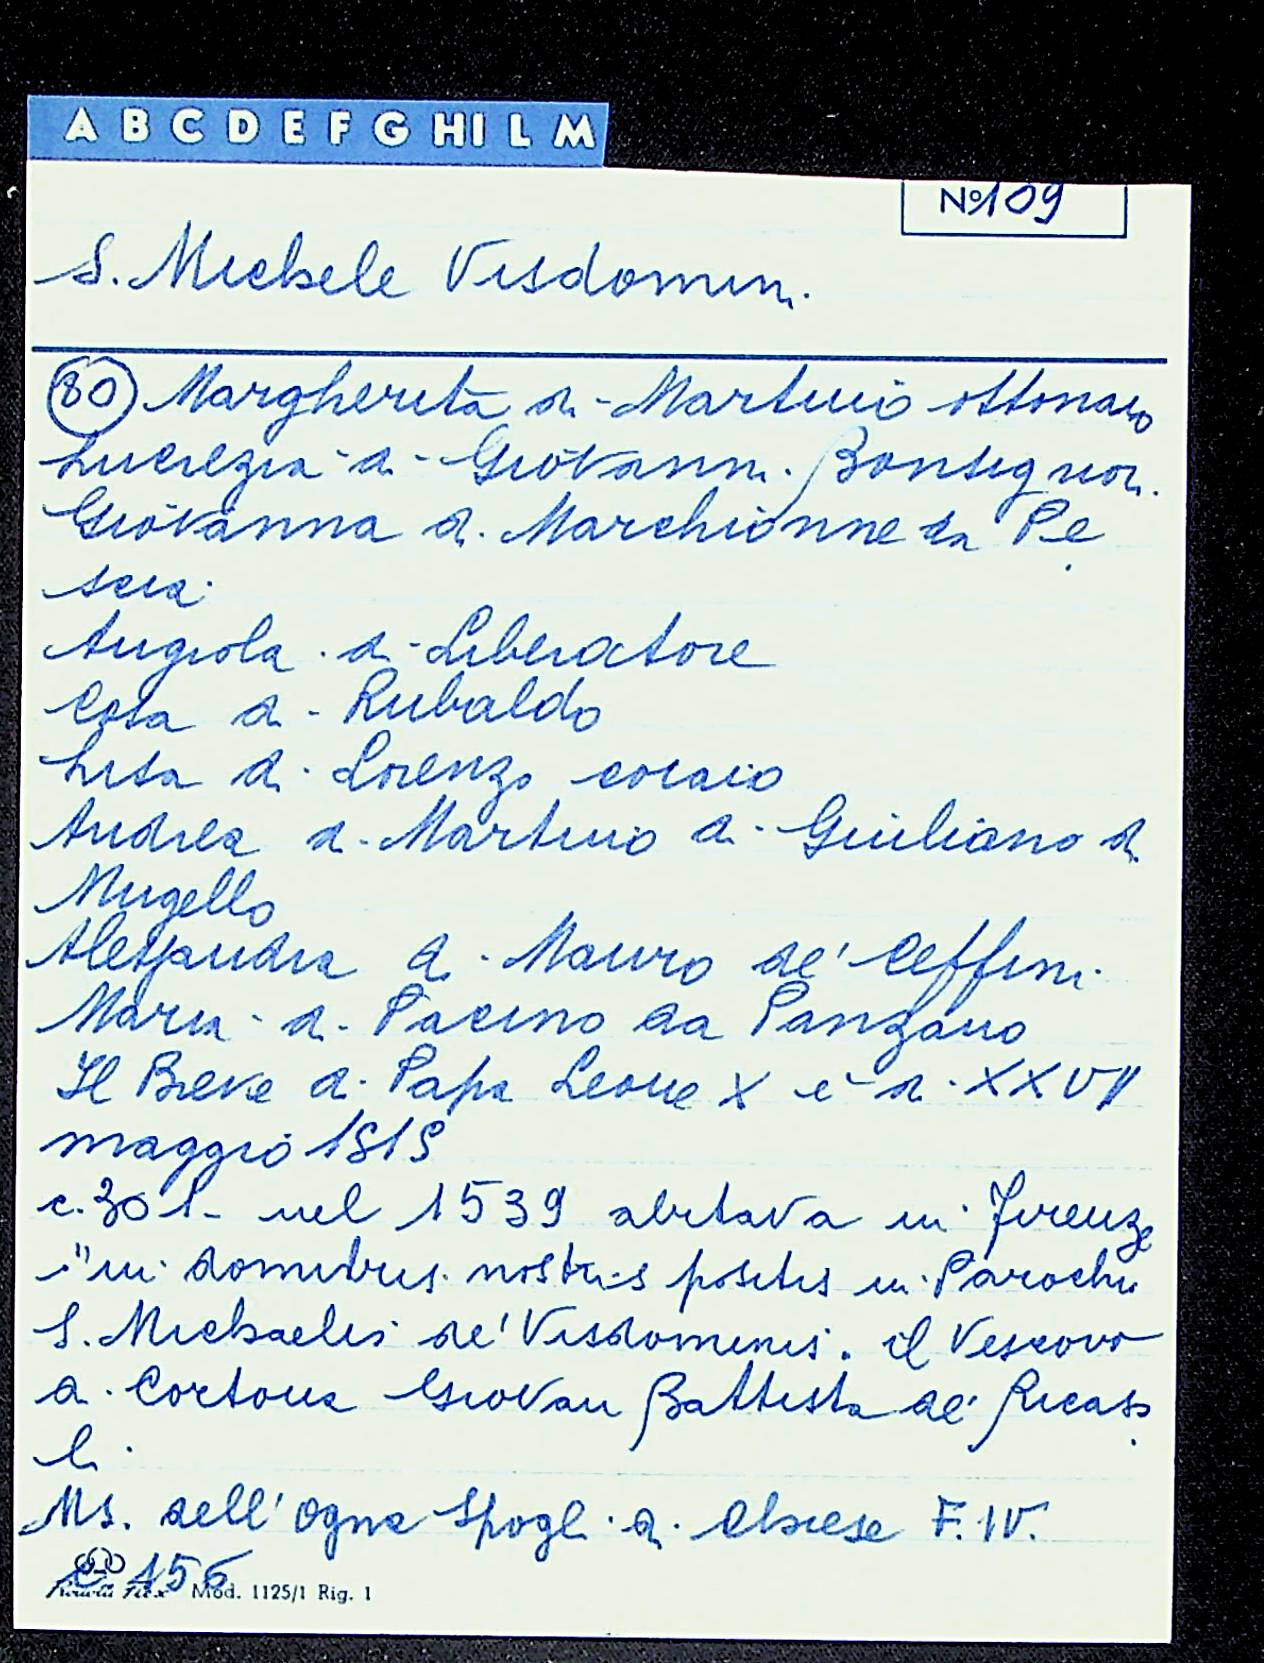 A B C D E F G HI L M
Nº 109
S. Michele Visdomini.
80 Margherita di Martino ottonaio
Lucrezia di Giovanni Bonsignori.
Giovanna di Marchionne da Pe
scia
Angiola di Liberatore
Cosa di Rubaldo
Lisa di Lorenzo coiaio
Andrea di Martino di Giuliano di
Mugello
Alessandra di Mauro de' Ceffini
Maria di Pacino da Panzano
Il Breve di Papa Leone X è di XXVII
maggio 1515
c. 301- nel 1539 abitava in Firenze
"in domibus nostris positis in Parochia
S. Michaelis de' Visdominis. il Vescovo
di Cortona Giovan Battista de' Ricaso
li.
Ms. dell'Ogna Spogli di Chiese F. IV.
c. 156
Mod. 1125/1 Rig. 1